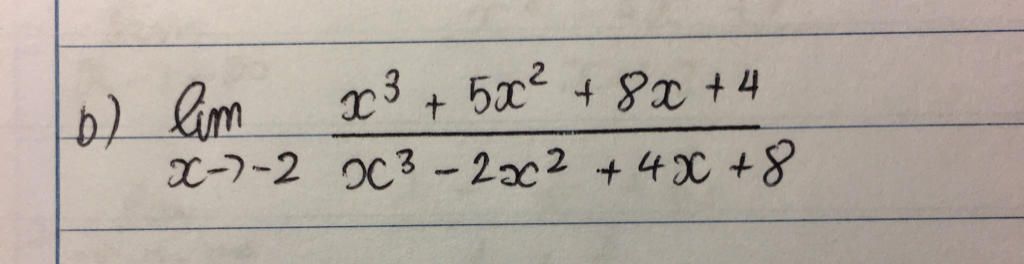 b) lim x³ + 5x² + 8x + 4
x→-2 x³ - 2x² + 4x + 8